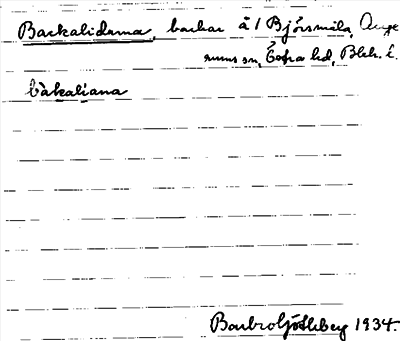 Backaliderna, backar å 1 Björsmåla, Ange
rums sn, Östra hd, Blek. l.
bàkaliana
Barbro Götleberg 1934.